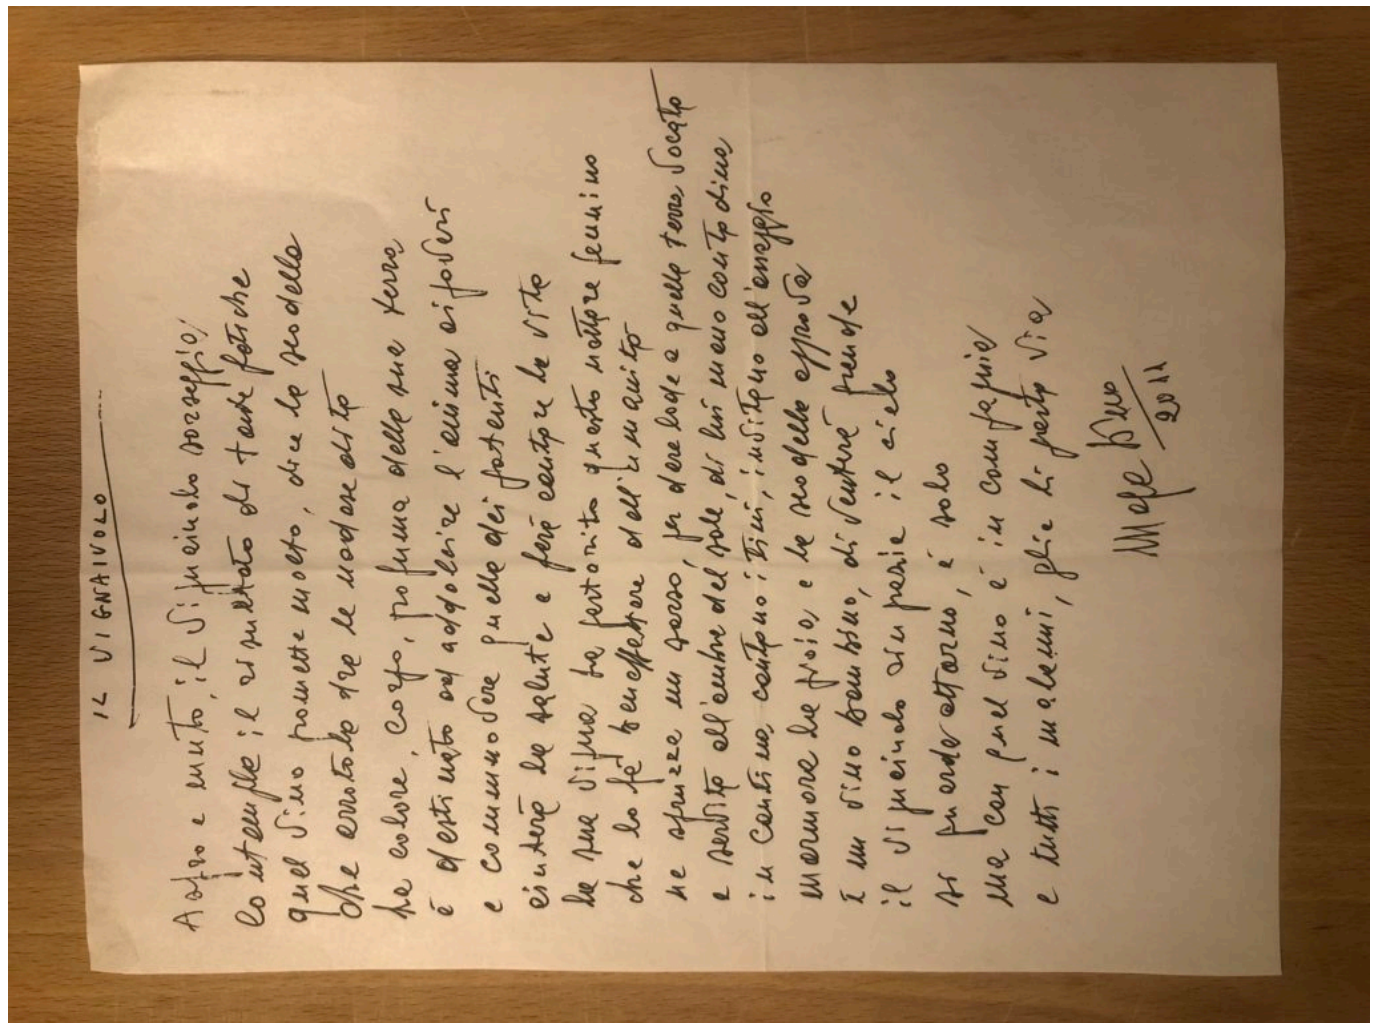 IL VIGNAIVOLO
Aspro e muto, il vignaiolo sorseggia,
contempla il risultato di tante fatiche
quel vino promette molto, dice la scodella
che arrotola tra le nodose dita
ha colore, corpo, profuma della sua terra
è destinato ad addolcire l'anima ai poveri
e commuovere quella dei potenti
aiuterà la salute e farà cantare la vita
la sua vigna ha partorito questo nettare femmino
che lo fa benefattore dell'umanità
ne spruzza un sorso, per dare lode a quella terra vocata
e servita all'ombra del sole, di lui mano contadina
in cantina cantano i tini, invitano all'assaggio
mormora la gioia e la scodella approva
è un vino bambino, diventerà grande
il vignaiolo ringrazia il cielo
si guarda attorno, è solo
ma con quel vino è in compagnia
e tutti i malanni, glie li porta via
2011